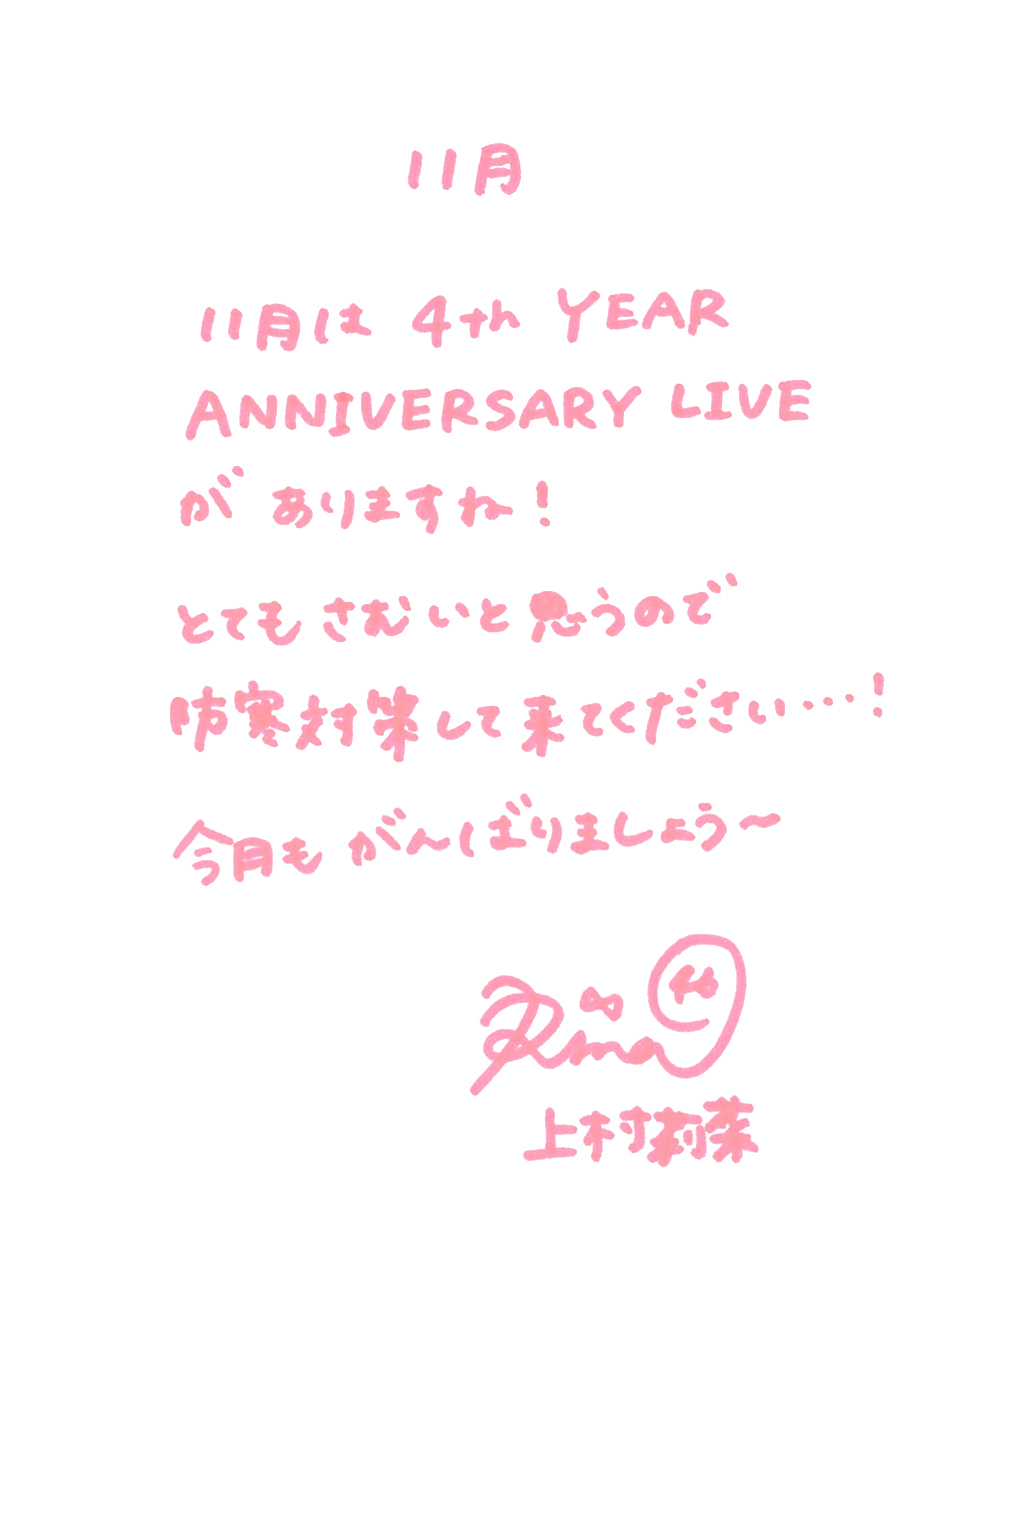 11月
11月は 4th YEAR
ANNIVERSARY LIVE
が ありますね!
とても さむいと思うので
防寒対策して来てください……!
今月も がんばりましょう〜
Rina
46
上村莉菜